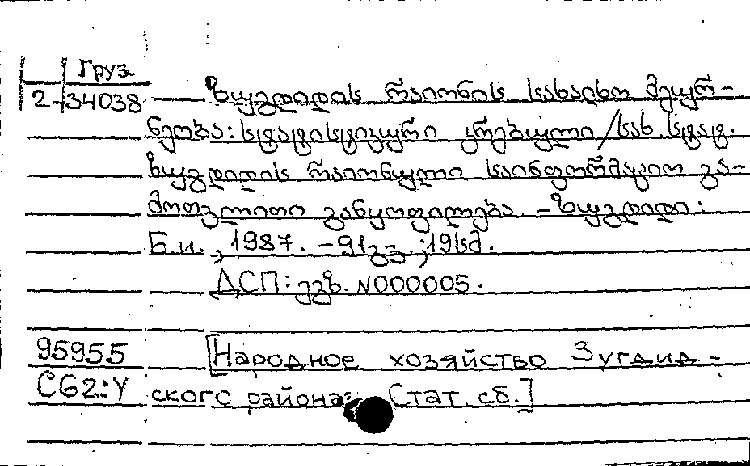 Груз
2-34038 ზუგდიდის რაიონის სახალხო მეურ-
ნეობა: სტატისტიკური კრებული /სახ. სტატ.
ზუგდიდის რაიონული საინფორმაციო გა-
მოთვლითი განყოფილება. – ზუგდიდი:
Б.и., 1987. – 91გვ.; 19სმ.
ДСП: ეგზ. N000005.
95955 [Народное хозяйство Зугдид-
С62:У ского района: Стат. сб.]